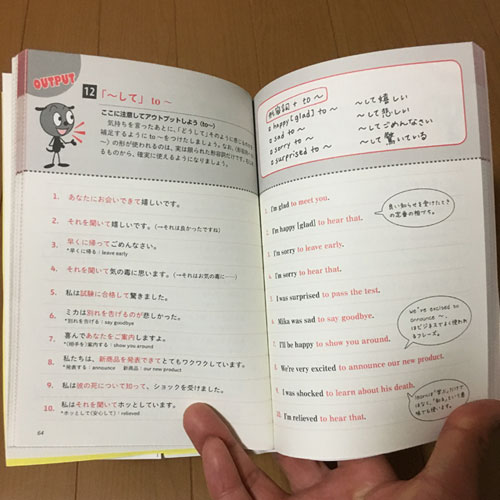 OUTPUT
12 「〜して」 to 〜
ここに注意してアウトプットしよう (to〜)
気持ちを言ったあとに、「どうして」そのように感じるのかを
補足するように to 〜をつけたしましょう。なお、〈形容詞+to
〜〉の形が使われるのは、実は限られた形容詞だけです。
るものから、確実に使えるようになりましょう。
1. あなたにお会いできて嬉しいです。
2. それを聞いて嬉しいです。(→それは良かったですね)
3. 早くに帰ってごめんなさい。
*早くに帰る:leave early
4. それを聞いて気の毒に思います。(→それはお気の毒に……)
5. 私は試験に合格して驚きました。
6. ミカは別れを告げるのが悲しかった。
*別れを告げる:say goodbye
7. 喜んであなたをご案内しますよ。
*(相手を)案内する:show you around
8. 私たちは、新商品を発表できてとてもワクワクしています。
*発表する:announce 新商品:our new product
9. 私は彼の死について知って、ショックを受けました。
10. 私はそれを聞いてホッとしています。
*ホッとして(安心して):relieved
64
形容詞 + to 〜
happy[glad] to 〜 〜して嬉しい
sad to 〜 〜して悲しい
sorry to 〜 〜してごめんなさい
surprised to 〜 〜して驚いている
1. I'm glad to meet you.
2. I'm happy [glad] to hear that.
良い知らせを受けたときの定番の返しです。
3. I'm sorry to leave early.
4. I'm sorry to hear that.
5. I was surprised to pass the test.
6. Mika was sad to say goodbye.
7. I'll be happy to show you around.
We're excited to
announce 〜.
はビジネスでよく使われ
るフレーズ。
8. We're very excited to announce our new product.
9. I was shocked to learn about his death.
10. I'm relieved to hear that.
learnは"学ぶ"だけで
はなく、"知る"という意
味でも使います。